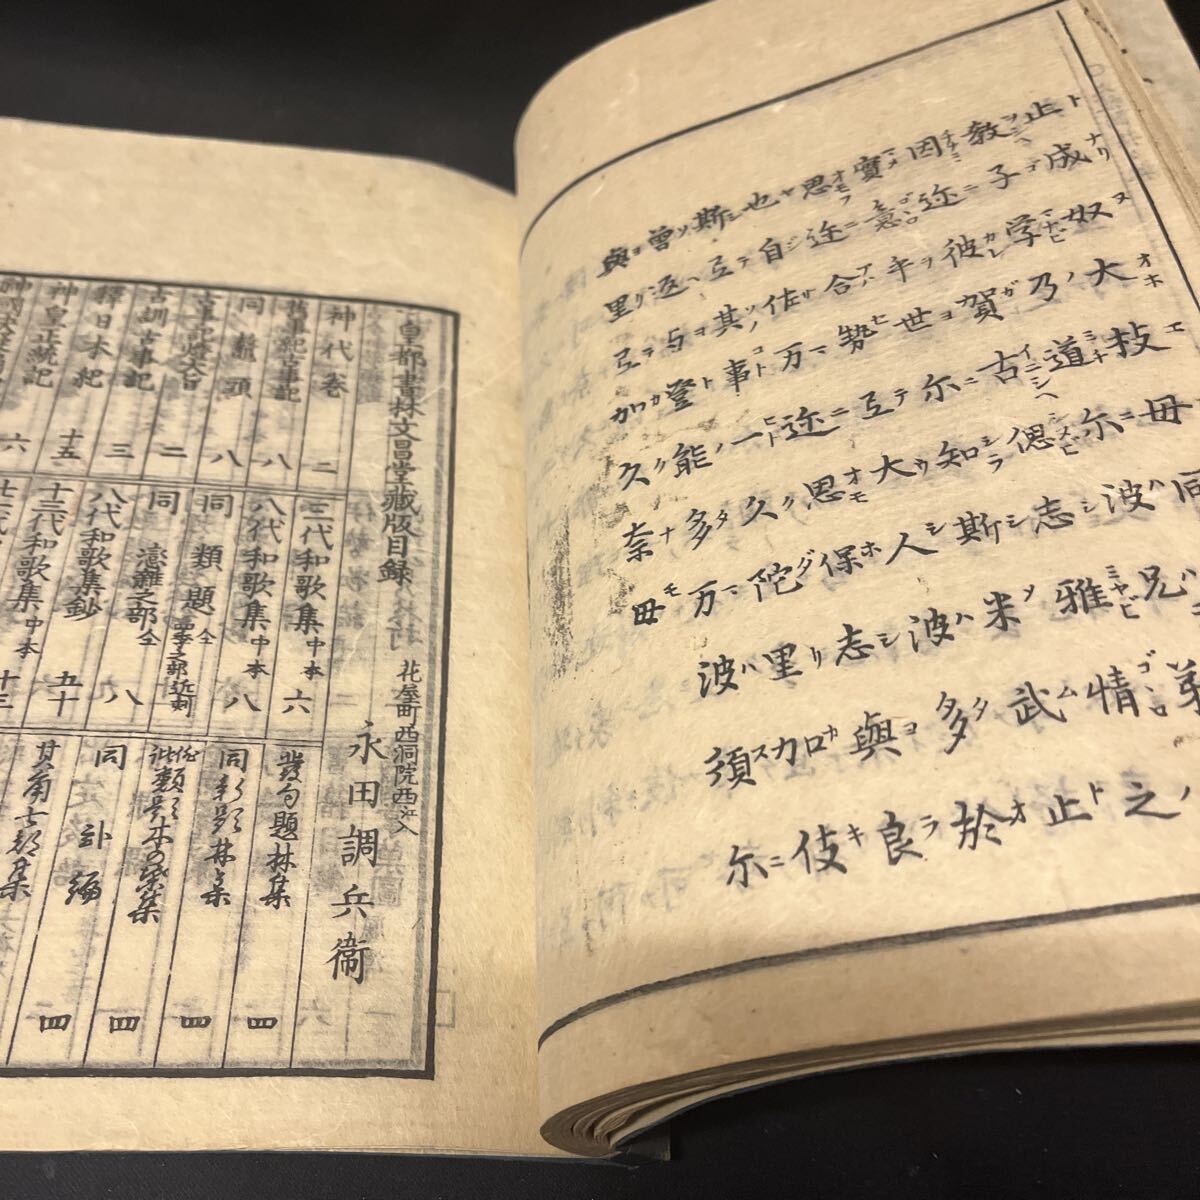 止成奴大枝毋同
教子学乃道尓波兄弟
因迩彼賀古偲志雅情之
實意乎世尓知斯米武止
思迩合勢弖大人波多於
也自佐万迩思保志與良
斯弖其事一久陀里加伎
曽返与登能多万波須尓
與里弖加久奈毋
皇都書林文昌堂蔵版目録
花屋町西洞院西江入
永田調兵衛
神代巻 二
舊事紀古事記 八
同 鼇頭 八
古事記燈大旨 二
古訓古事記 三
釋日本紀 十五
神皇正統記 六
三代和歌集 中本 六
八代和歌集 中本 八
同 類題 全
同 恋雜之部 全 八
八代和歌集鈔 五十
十三代和歌集 中本 十三
發句題林集 四
同新題林集 四
俳諧類題木の葉集 四
同 卦編 四
其角七部集